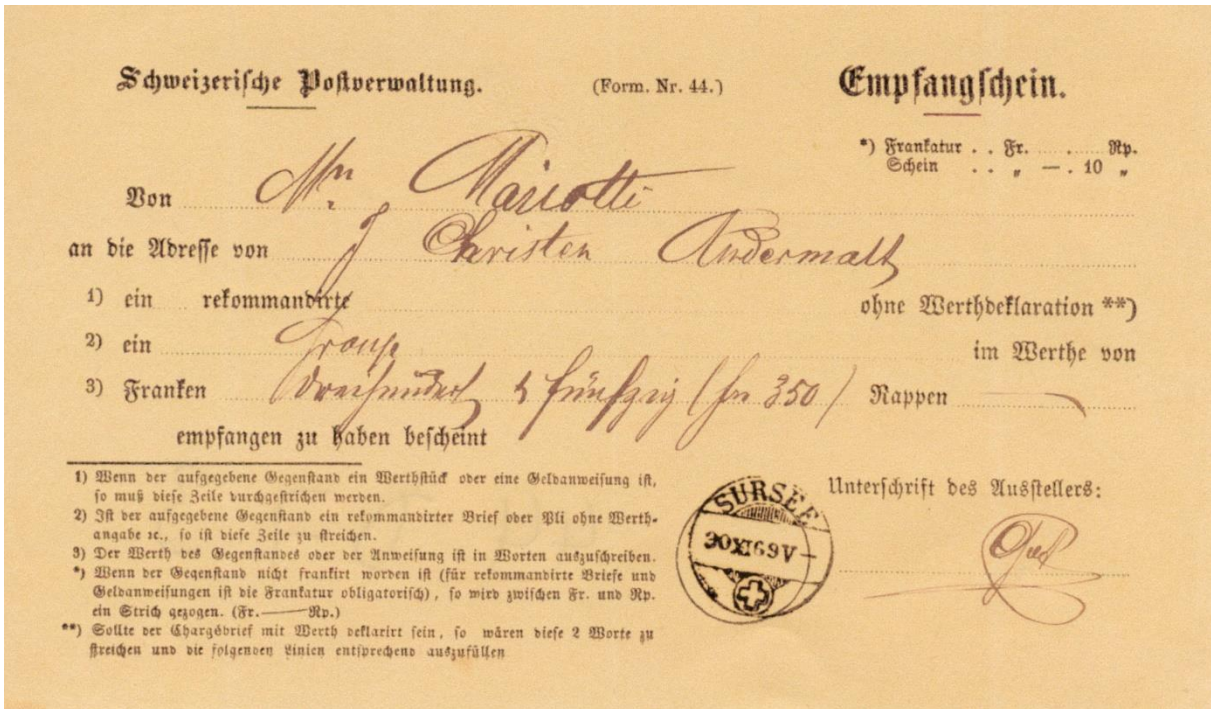 Schweizerische Postverwaltung. (Form. Nr. 44.) Empfangschein.
*) Frankatur . . Fr. Rp.
Schein . . „ — . 10 „
Von Mr Mariotti
an die Adresse von J Christen Andermatt
1) ein rekommandirte ohne Werthdeklaration **)
2) ein Group im Werthe von
3) Franken Dreihundert & fünfzig (frs 350) Rappen —
empfangen zu haben bescheint
1) Wenn der aufgegebene Gegenstand ein Werthstück oder eine Geldanweisung ist,
so muß diese Zeile durchgestrichen werden.
2) Ist der aufgegebene Gegenstand ein rekommandirter Brief oder Pli ohne Werth-
angabe ꝛc., so ist diese Zeile zu streichen.
3) Der Werth des Gegenstandes oder der Anweisung ist in Worten auszuschreiben.
*) Wenn der Gegenstand nicht frankirt worden ist (für rekommandirte Briefe und
Geldanweisungen ist die Frankatur obligatorisch), so wird zwischen Fr. und Rp.
ein Strich gezogen. (Fr.——Rp.)
**) Sollte der Chargébrief mit Werth deklarirt sein, so wären diese 2 Worte zu
streichen und die folgenden Linien entsprechend auszufüllen
SURSEE
30XI69V—
Unterschrift des Ausstellers: